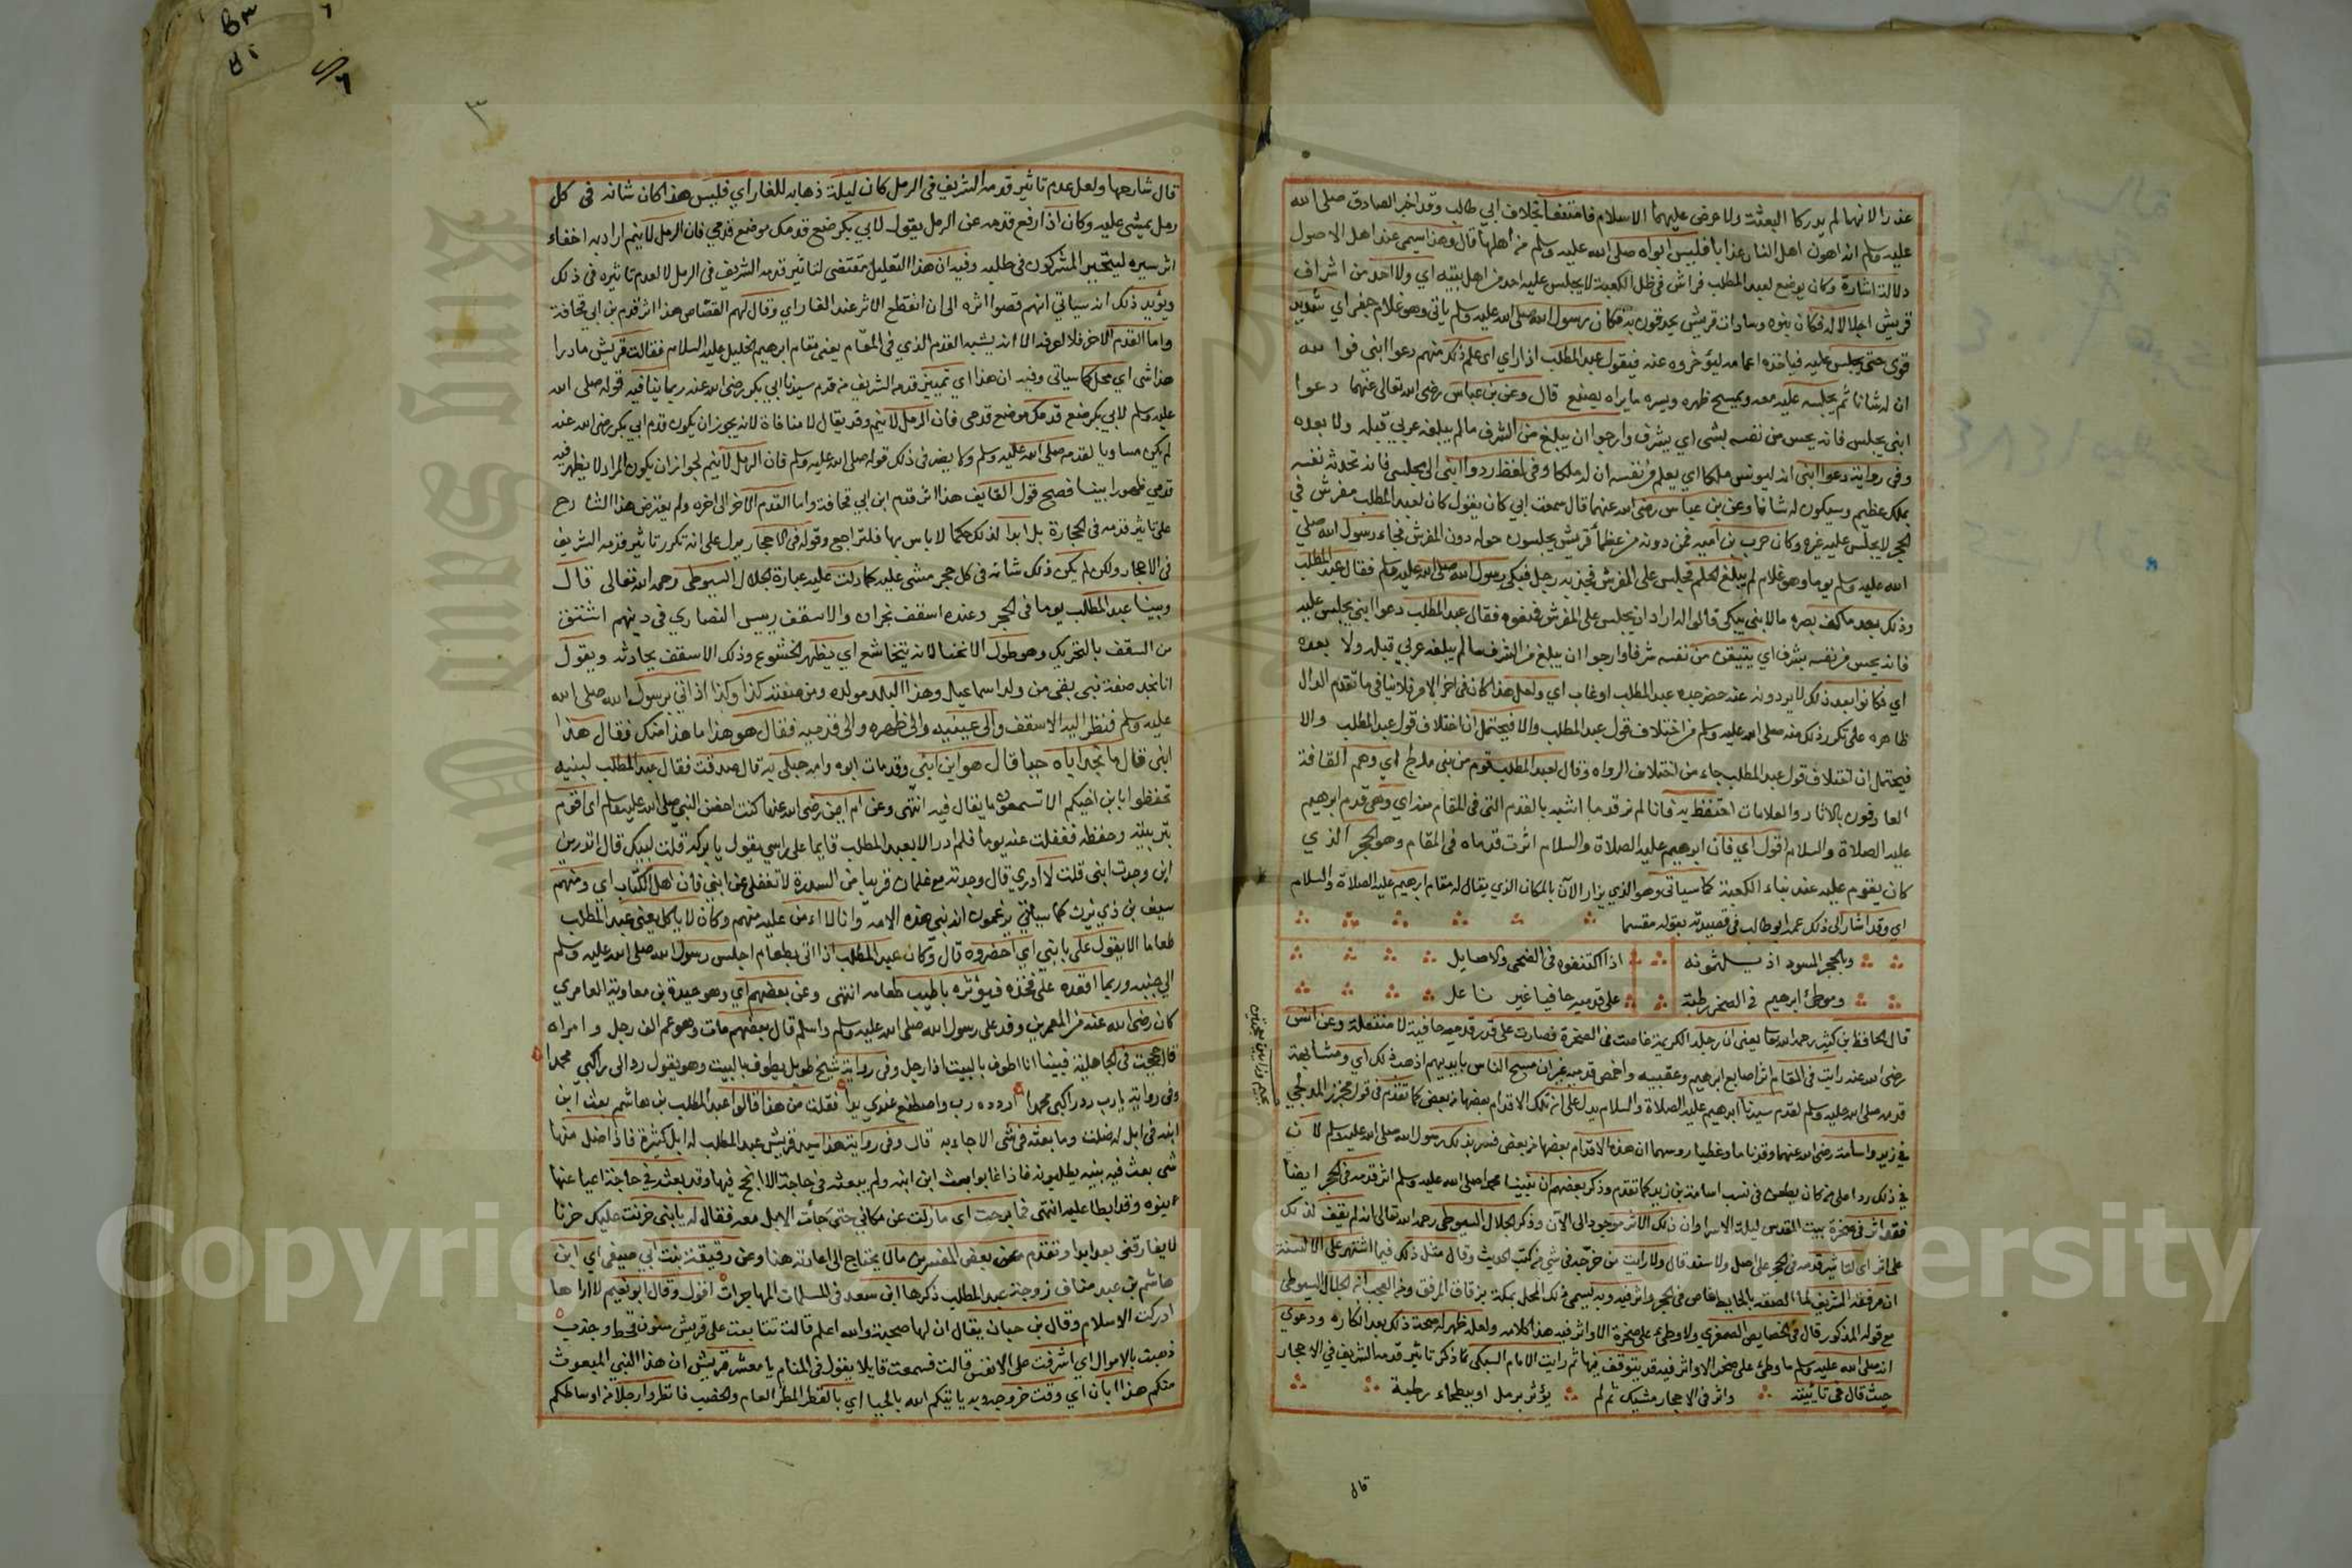 عذرا لانهما لم يدركا البعثة ولا عرض عليهما الاسلام فامتنعا بخلاف ابي طالب وقد اخبر الصادق صلى الله
عليه وسلم انه اهون اهل النار عذابا فليس ابواه صلى الله عليه وسلم من أهلها قال وهذا يسمى عند اهل الاصول
دلالة اشارة وكان يوضع لعبد المطلب فراش في ظل الكعبة لا يجلس عليه احد من اهل بيته اي ولا احد من اشراف
قريش اجلالا له فكان بنوه وسادات قريش يحدقون به فكان رسول الله صلى الله عليه وسلم ياتي وهو غلام جفر اي شديد
قوي حتى يجلس عليه فياخذه اعمامه ليؤخروه عنه فيقول عبد المطلب اذا راي اي علم ذلك منهم دعوا ابني فوالله
ان له شانا ثم يجلسه عليه معه ويمسح ظهره ويسره ما يراه يصنع قال وعن بن عباس رضي الله تعالى عنهما دعوا
ابني يجلس فانه يحس من نفسه بشي اي بشرف وارجوا ان يبلغ من الشرف ما لم يبلغه عربي قبله ولا بعده
وفي رواية دعوا ابني انه ليونس ملكا اي يعلم من نفسه ان له ملكا وفي لفظ ردوا ابني الى مجلسي فانه تحدثه نفسه
بملك عظيم وسيكون له شانا وعن بن عباس رضي الله عنهما قال سمعت ابي كان يقول كان لعبد المطلب مفرش في
الحجر لا يجلس عليه غيره وكان حرب بن امية فمن دونه من عظمأ قريش يجلسون حوله دون المفرش فجاء رسول الله صلي
الله عليه وسلم يوما وهو غلام لم يبلغ الحلم فجلس على المفرش فجذبه رجل فبكى رسول الله صلى الله عليه وسلم فقال عبد المطلب
وذلك بعد ما كف بصره ما لابني يبكي قالوا له اراد ان يجلس على المفرش فمنعوه فقال عبد المطلب دعوا ابني يجلس عليه
فانه يحس من نفسه بشرف اي يتيقن من نفسه شرفا وارجوا ان يبلغ من الشرف ما لم يبلغه عربي قبله ولا بعده
اي فكانوا بعد ذلك لا يردونه عنه حضر جده عبد المطلب او غاب اي ولعل هذا كان في اخر الامر فلا ينافي ما تقدم الدال
ظاهره على تكرر ذلك منه صلى الله عليه وسلم من اختلاف قول عبد المطلب والا فيحتمل ان اختلاف قول عبد المطلب والا
فيحتمل ان اختلاف قول عبد المطلب جاء من اختلاف الرواه وقال لعبد المطلب قوم من بني مدلج اي وهم القافة
العارفون بالاثار والعلامات احتفظ به فانا لم نر قدما اشبه بالقدم التي في المقام منه اي وهي قدم ابرهيم
عليه الصلاة والسلام اقول اي فان ابرهيم عليه الصلاة والسلام اثرت قدماه في المقام وهو الحجر الذي
كان يقوم عليه عند بناء الكعبة كما سياتي وهو الذي يزار الآن بالمكان الذي يقال له مقام ابرهيم عليه الصلاة والسلام
اي وقد اشار الى ذلك عمه ابو طالب في قصيدته بقوله مقسما
وبالحجر المسود اذ يلثمونه اذا اكتنفوه في الضحى والاصايل
وموطئ ابرهيم في الصخر رطبة على قدميه حافيا غير ناعل
قال الحافظ بن كثير رحمه الله تعا يعني ان رجله الكريمة غاصت في الصخرة فصارت على قدر قدميه حافية لا منتعلة وعن انس
رضي الله عنه رايت في المقام اثر اصابع ابرهيم وعقبيه واخمص قدميه غير ان مسح الناس بايديهم اذهب ذلك اي ومشابهة
قدمه صلى الله عليه وسلم لقدم سيدنا ابرهيم عليه الصلاة والسلام يدل على ان تلك الاقدام بعضها من بعض كما تقدم في قول مجزز المدلجي
في زيد واسامة رضي الله عنهما وقد ناما وغطيا روسهما ان هذه الاقدام بعضها من بعض فسر بذلك رسول الله صلى الله عليه وسلم لان
في ذلك ردا على من كان يطعن في نسب اسامة بن زيد كما تقدم وذكر بعضهم ان نبينا محمدا صلى الله عليه وسلم اثر قدمه في الحجر ايضا
فقد اثر في صخرة بيت المقدس ليلة الاسرا وان ذلك الاثر موجود الى الآن وذكر الجلال السيوطي رحمه الله تعالى انه لم يقف لذلك
على اثر اي لتاثير قدمه في الحجر على اصل ولا سند قال ولا رايت من خرّجه في شي من كتب الحديث وقال مثل ذلك فيما اشتهر على الالسنة
ان مرفقه الشريف لما الصقه بالحايط غاص في الحجر واثر فيه وبه يسمى ذلك المحل بمكة بزقاق المرفق ومن العجب ان الجلال السيوطي
مع قوله المذكور قال في الخصايص الصغري ولا وطئ على صخرة الا واثر فيه هذا كلامه ولعله ظهر له صحة ذلك بعد انكاره ودعوي
انه صلى الله عليه وسلم ما وطئ على صخر الا واثر فيه قد يتوقف فيها ثم رايت الامام السبكي ذكر تاثير قدمه الشريف في الاحجار
حيث قال في تائيته واثر في الاحجار مشيك ثم لم يؤثر برمل او ببطحاء رطبة
قال
٣
قال شارحها ولعل عدم تاثير قدمه الشريف في الرمل كان ليلة ذهابه للغار اي فليس هذا كان شانه في كل
رمل يمشي عليه وكان اذا رفع قدمه عن الرمل يقول لابي بكر ضع قدمك موضع قدمي فان الرمل لا ينم اراد به اخفاء
اثر سيره ليتحير المشركون في طلبه وفيه ان هذا التعليل مقتضى لتاثير قدمه الشريف في الرمل لا لعدم تاثيره في ذلك
ويؤيد ذلك انه سياتي انهم قصوا اثره الى ان انقطع الاثر عند الغار اي وقال لهم القصّاص هذا اثر قدم بن ابي قحافة
واما القدم الاخر فلا اعرفه الا انه يشبه القدم الذي في المقام يعني مقام ابرهيم الخليل عليه السلام فقالت قريش ما ورا
هذا شي اي محل كما سياتي وفيه ان هذا اي تمييز قدمه الشريف من قدم سيدنا ابي بكر رضي الله عنه ربما ينافيه قوله صلى الله
عليه وسلم لابي بكر ضع قدمك موضع قدمي فان الرمل لا ينم وقد يقال لا منافاة لانه يجوز ان يكون قدم ابي بكر رضي الله عنه
لم يكن مساويا لقدمه صلى الله عليه وسلم ولا يضر في ذلك قوله صلى الله عليه وسلم فان الرمل لا ينم لجواز ان يكون المراد لا يظهر فيه
قدمي ظهورا بينا فصح قول القايف هذا اثر قدم ابن ابي قحافة واما القدم الاخر الى اخره ولم يعترض هذا الشارح
على تاثير قدمه في الحجارة بل ابدا لذلك حكما لا باس بها فلتراجع وقوله في الاحجار يدل على انه تكرر تاثير قدمه الشريف
في الاحجار ولكن لم يكن ذلك شانه في كل حجر مشى عليه كما دلت عليه عبارة الجلال السيوطي رحمه الله تعالى قال
وبينا عبد المطلب يوما في الحجر وعنده اسقف نجران والاسقف رييس النصاري في دينهم اشتق
من السقف بالتحريك وهو طول الانحنا لانه يتخاشع اي يظهر الخشوع وذلك الاسقف يحادثه ويقول
انا نجد صفة نبي بقي من ولد اسماعيل وهذا البلد مولده ومن صفته كذا وكذا اذ اتي برسول الله صلى الله
عليه وسلم فنظر اليه الاسقف والى عينيه والى ظهره والى قدميه فقال هو هذا ما هذا منك فقال هذا
ابني قال ما نجد اباه حيا قال هو ابن ابني وقد مات ابوه وامه حبلى به قال صدقت فقال عبد المطلب لبنيه
تحفظوا بابن اخيكم الا تسمعون ما يقال فيه انتهى وعن ام ايمن رضي الله عنها كنت احضن النبي صلى الله عليه وسلم اي اقوم
بتربيته وحفظه فغفلت عنه يوما فلم ادر الا بعبد المطلب قايما على راسي يقول يا بركة قلت لبيك قال اتدرين
اين وجدت ابني قلت لا ادري قال وجدته مع غلمان قريبا من السدرة لا تغفلي عن ابني فان اهل الكتاب اي ومنهم
سيف بن ذي يزن كما سياتي يزعمون انه نبي هذه الامة وانا لا اءمن عليه منهم وكان لا ياكل يعني عبد المطلب
طعاما الا يقول علي بابني اي احضروه قال وكان عبد المطلب اذا اتى بطعام اجلس رسول الله صلى الله عليه وسلم
الي جنبه وربما اقعده على فخذه فيؤثره باطيب طعامه انتهى وعن بعضهم اي وهو حيدة بن معاوية العامري
كان رضي الله عنه من المعمرين وفد على رسول الله صلى الله عليه وسلم واسلم قال بعضهم مات وهو عم الف رجل وامراه
قال حججت في الجاهلية فبينا انا اطوف بالبيت اذا رجل وفي رواية شيخ طويل يطوف بالبيت وهو يقول رد الى راكبي محمدا
وفي رواية يا رب رد راكبي محمدا اردده رب واصطنع عندي يدا فقلت من هذا قالوا عبد المطلب بن هاشم بعث ابن
ابنه في ابل له ضلت وما بعثه في شي الا جاء به قال وفي رواية هذا سيد قريش عبد المطلب له ابل كثيرة فاذا ضل منها
شي بعث فيه بنيه يطلبونه فاذا غابوا بعث ابن ابنه ولم يبعثه في حاجة الا انجح فيها وقد بعثه في حاجة اعيا عنها
بنوه وقد ابطا عليه انتهى فما برحت اي ما زلت عن مكاني حتى جأت الابل معه فقال له يا بني حزنت عليك حزنا
لا يفارقني بعد ابدا وتقدم عن بعض المفسرين ما لا يحتاج الى اعادته هنا وعن رقيقة بنت ابي صيفي اي ابن
هاشم بن عبد مناف زوجة عبد المطلب ذكرها ابن سعد في المسلمات المهاجرات اقول وقال ابو نعيم لا اراها
ادركت الاسلام وقال بن حبان يقال ان لها صحبة والله اعلم قالت تتابعت على قريش سنون قحط وجدب
ذهبت بالاموال اي اشرفت على الانفس قالت فسمعت قايلا يقول في المنام يا معشر قريش ان هذا النبي المبعوث
منكم هذا ابان اي وقت خروجه وبه ياتيكم الله بالحيا اي بالقطر المطر العام والخصب فانظروا رجلا من اوساطكم
Copyright © King Saud University
King Saud University